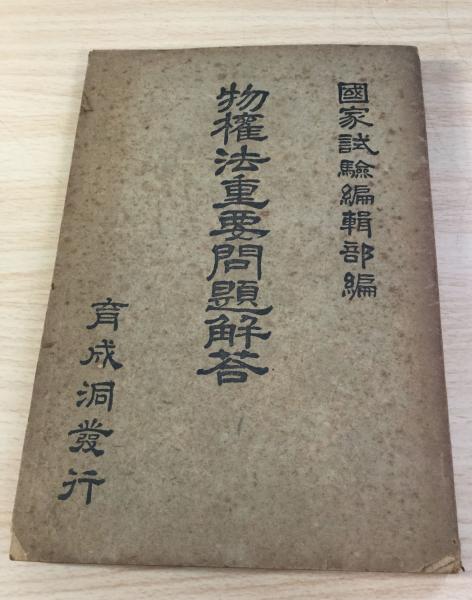 國家試驗編輯部編
物權法重要問題解答
育成洞發行